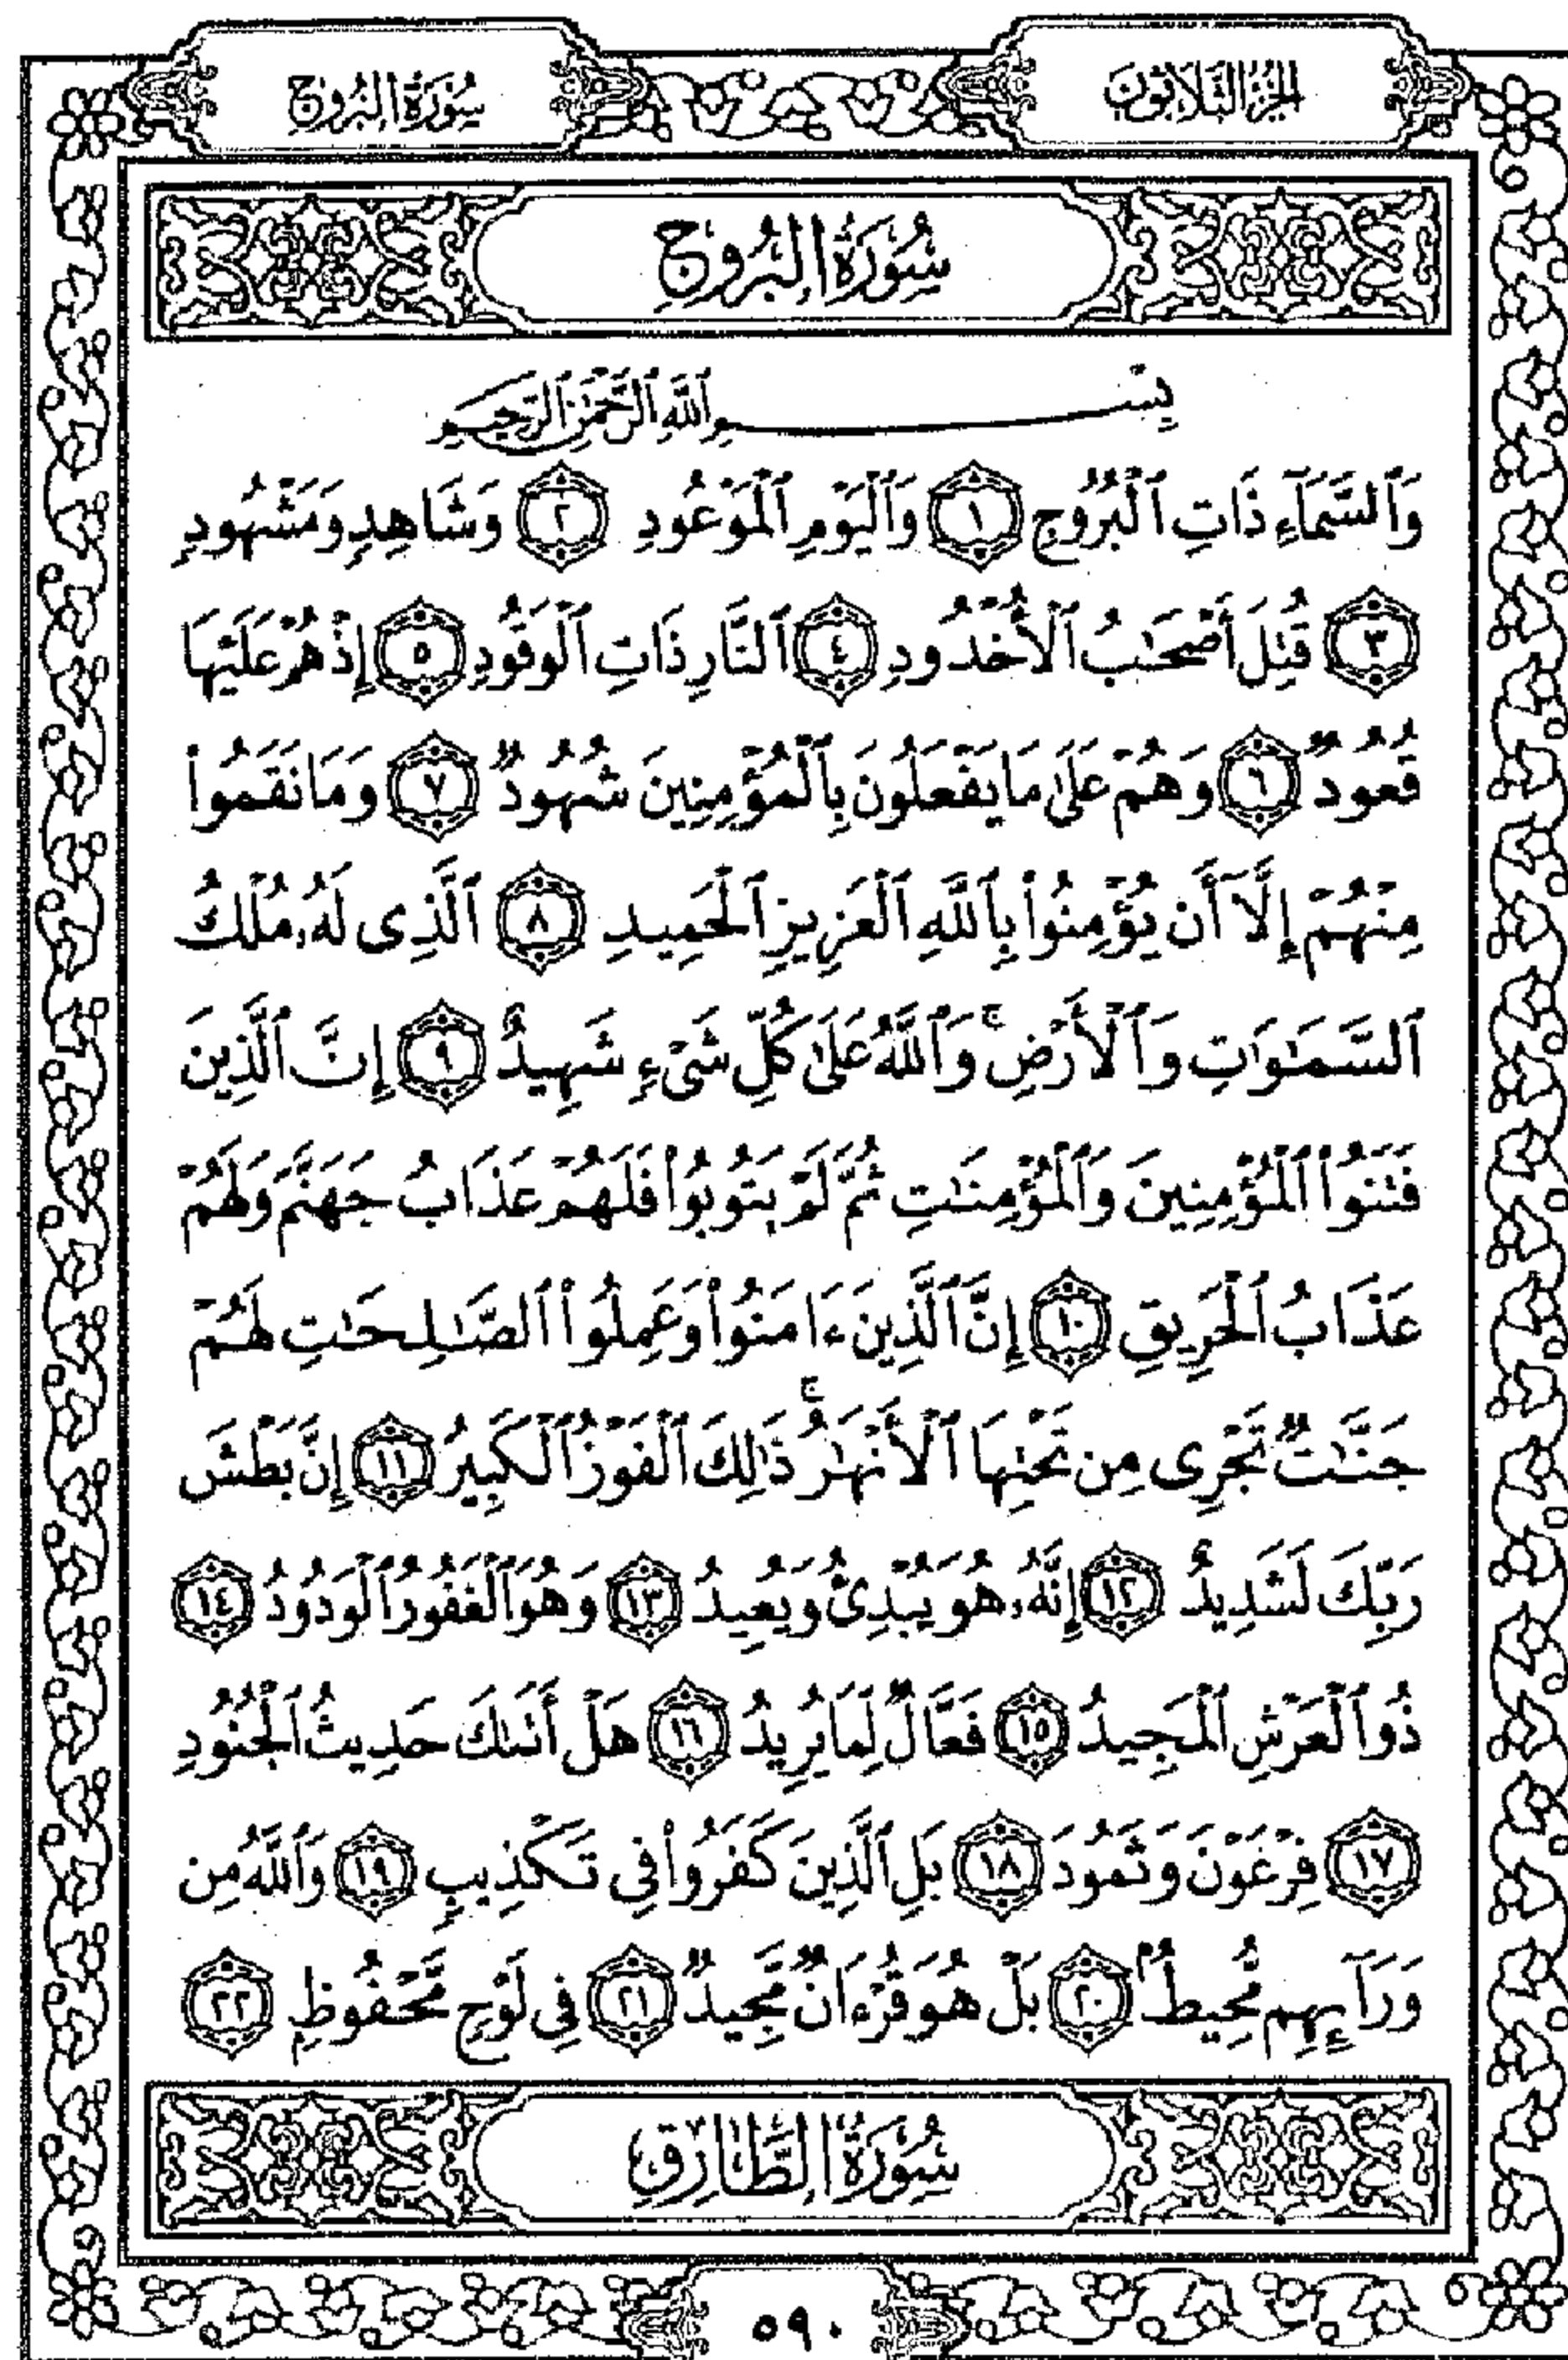 الجزء الثلاثون
سورة البروج
سُورَةُ البُرُوجِ
بِسْمِ ٱللَّهِ ٱلرَّحْمَٰنِ ٱلرَّحِيمِ
وَٱلسَّمَآءِ ذَاتِ ٱلْبُرُوجِ ١ وَٱلْيَوْمِ ٱلْمَوْعُودِ ٢ وَشَاهِدٍ وَمَشْهُودٍ
٣ قُتِلَ أَصْحَٰبُ ٱلْأُخْدُودِ ٤ ٱلنَّارِ ذَاتِ ٱلْوَقُودِ ٥ إِذْ هُمْ عَلَيْهَا
قُعُودٌ ٦ وَهُمْ عَلَىٰ مَا يَفْعَلُونَ بِٱلْمُؤْمِنِينَ شُهُودٌ ٧ وَمَا نَقَمُوا۟
مِنْهُمْ إِلَّآ أَن يُؤْمِنُوا۟ بِٱللَّهِ ٱلْعَزِيزِ ٱلْحَمِيدِ ٨ ٱلَّذِى لَهُۥ مُلْكُ
ٱلسَّمَٰوَٰتِ وَٱلْأَرْضِ ۚ وَٱللَّهُ عَلَىٰ كُلِّ شَىْءٍ شَهِيدٌ ٩ إِنَّ ٱلَّذِينَ
فَتَنُوا۟ ٱلْمُؤْمِنِينَ وَٱلْمُؤْمِنَٰتِ ثُمَّ لَمْ يَتُوبُوا۟ فَلَهُمْ عَذَابُ جَهَنَّمَ وَلَهُمْ
عَذَابُ ٱلْحَرِيقِ ١٠ إِنَّ ٱلَّذِينَ ءَامَنُوا۟ وَعَمِلُوا۟ ٱلصَّٰلِحَٰتِ لَهُمْ
جَنَّٰتٌ تَجْرِى مِن تَحْتِهَا ٱلْأَنْهَٰرُ ۚ ذَٰلِكَ ٱلْفَوْزُ ٱلْكَبِيرُ ١١ إِنَّ بَطْشَ
رَبِّكَ لَشَدِيدٌ ١٢ إِنَّهُۥ هُوَ يُبْدِئُ وَيُعِيدُ ١٣ وَهُوَ ٱلْغَفُورُ ٱلْوَدُودُ ١٤
ذُو ٱلْعَرْشِ ٱلْمَجِيدُ ١٥ فَعَّالٌ لِّمَا يُرِيدُ ١٦ هَلْ أَتَىٰكَ حَدِيثُ ٱلْجُنُودِ
١٧ فِرْعَوْنَ وَثَمُودَ ١٨ بَلِ ٱلَّذِينَ كَفَرُوا۟ فِى تَكْذِيبٍ ١٩ وَٱللَّهُ مِن
وَرَآئِهِم مُّحِيطٌۢ ٢٠ بَلْ هُوَ قُرْءَانٌ مَّجِيدٌ ٢١ فِى لَوْحٍ مَّحْفُوظٍۭ ٢٢
سُورَةُ الطَّارِقِ
٥٩٠